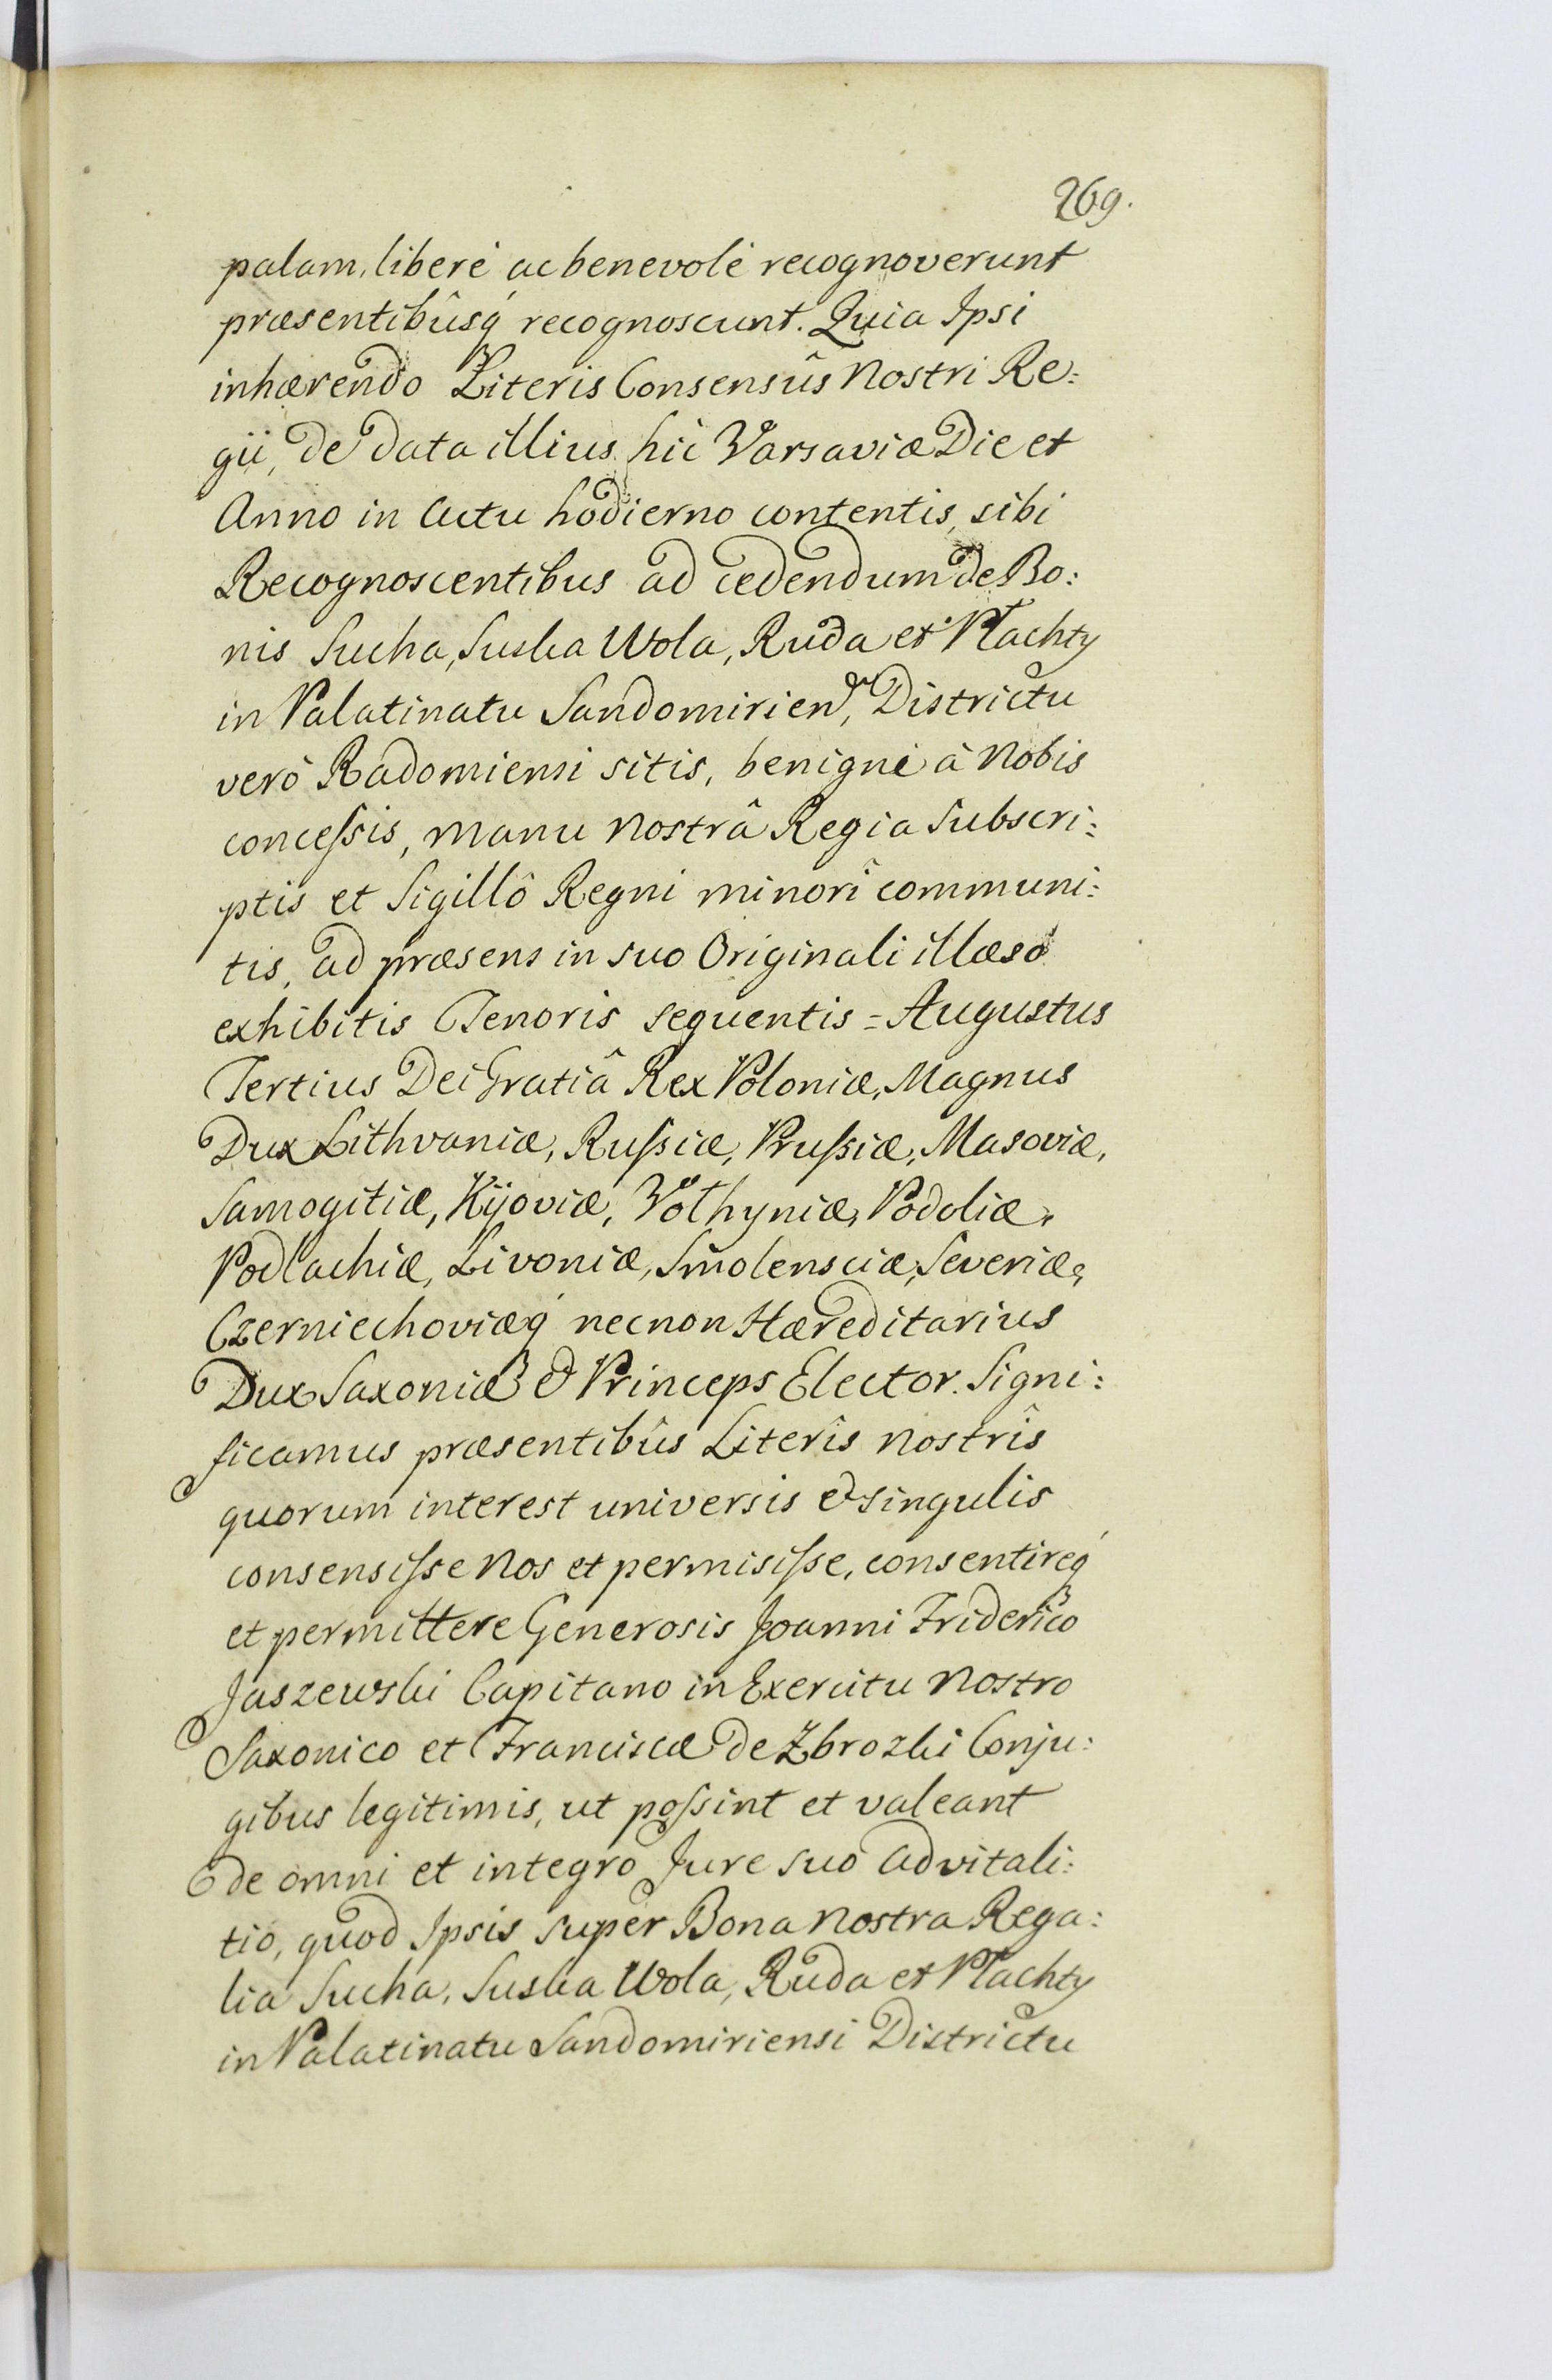 269.
palam, liberè ac benevolè recognoverunt
præsentibûsq́ recognoscunt. Quia Ipsi
inhærendo Literis Consensûs Nostri Re:
gii, de data illius hic Varsaviæ Die et
Anno in Actu hodierno contentis, sibi
Recognoscentibus ad cedendum de Bo:
nis Sucha, Suska Wola, Ruda et Płachty
in Palatinatu Sandomirien, Districtu
verò Radomiensi sitis, benignè à Nobis
concessis, manu Nostrâ Regia Subscri:
ptis et Sigillô Regni minori communi:
tis, ad præsens in suo Originali illæso
exhibitis Tenoris sequentis = Augustus
Tertius Dei Gratiâ Rex Poloniæ, Magnus
Dux Lithvaniæ, Russiæ, Prussiæ, Masoviæ,
Samogitiæ, Kijoviæ, Volhyniæ, Podoliæ,
Podlachiæ, Livoniæ, Smolensciæ, Severiæ,
Czerniechoviæq́ necnon Hæreditarius
Dux Saxoniæ & Princeps Elector. Signi:
ficamus præsentibûs Literîs Nostrîs
quorum interest universis & singulis
consensisse Nos et permisisse, consentireq́
et permittere Generosis Joanni Friderico
Jaszewski Capitano in Exercitu Nostro
Saxonico et Franciscæ de Zbrozki Conju:
gibus legitimis, ut possint et valeant
de omni et integro Jure suo Advitali:
tio, quod Ipsis super Bona Nostra Rega:
lia Sucha, Suska Wola, Ruda et Płachty
in Palatinatu Sandomiriensi Districtu